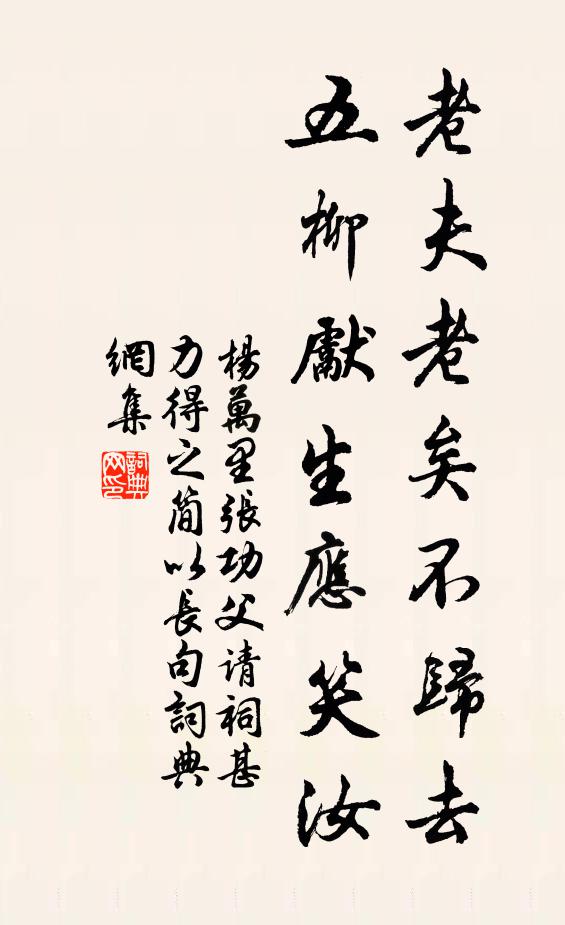 老夫老矣不歸去
五柳獻生應笑汝
楊萬里張功父请祠甚
力得之简以長句詞典
網集
詞典网印